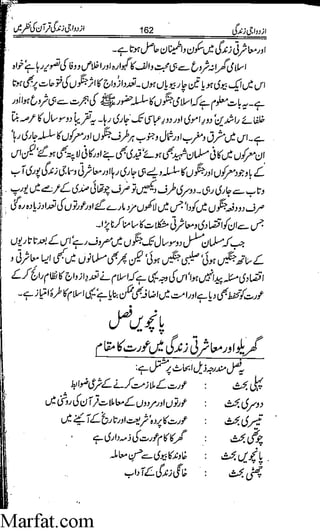 ازدواجی زندگی 162 ازدواجی زندگی قرآن کی نظر میں
اور معاشرتی زندگی میں سکون و اطمینان حاصل ہوتا ہے۔
اسلامی گھرانہ شروع سے ہی محبت والفت کا گہوارہ اور اخلاص و وفا کی تصویر رہا ہے خواہ
اس میں ایک بیوی ہو یا تین چار بیویاں ہوں۔ تعدد ازواج کا اثر جنگوں کی فتوحات پر بھی ہوتا
ہے۔ یہ بات معلوم ہے کہ اسلامی جنگوں کا سلسلہ حضور ﷺ کی ہجرت سے ہی شروع ہوا اور
خلفائے راشدین، دور اموی اور دور عباسی تک جاری رہا۔ یہ تقریباً دو سو سال کا عرصہ بنتا
ہے۔ اس میں مشرق و مغرب اور شمال و جنوب ہر طرف جنگوں اور معرکوں کا سلسلہ جاری رہا
ان معرکوں میں کافی مسلمان شہید بھی ہوئے، قیدی بھی بنے اور کافی لاپتہ بھی ہو گئے، لیکن اس
کے باوجود معرکوں اور جنگوں کا سلسلہ ویسے ہی جاری رہا اور معاشرتی و سماجی زندگی پوری آب
و تاب سے جاری رہی۔ دوسری طرف دیکھیں تو صرف چوتھائی صدی کے عرصے میں یورپ
صرف دو دفعہ جنگوں میں کودا، جس میں لاکھوں مرد مارے گئے اور عورتوں کی تعداد زیادہ ہو گئی
جس سے ان کو اقتصادی و معاشرتی مشکلات کا سامنا کرنا پڑا۔
جب کہ مسلمان مسلسل دو سو سال تک جنگوں میں مصروف رہے، اس کے بعد تاتاریوں
کے ساتھ جنگیں ہوئیں، صلیبی جنگیں ہوئیں، لیکن پھر بھی مسلمانوں میں کبھی ایسا معاشرتی و
اقتصادی مسئلہ پیدا نہیں ہوا، اس کی وجہ یہی ہے کہ اسلام نے تعدد ازواج کا نظام رائج کر کے
عورت کو تحفظ بھی دیا ہے اور امت میں اضافہ بھی ممکن بنایا ہے، یہی اسلام کا طرہ امتیاز ہے۔
پانچویں فصل
گھریلو اور معاشرتی زندگی میں عورت کا مقام
یہ فصل مندرجہ ذیل ابحاث پر مشتمل ہے:
پہلی بحث : عورت کے ملازمت کرنے کے شرعی ضوابط
دوسری بحث : عورتوں اور مردوں کے معاملات قرآن کی روشنی میں
تیسری بحث : عورت کا پردہ، شریعت اور تاریخ کے آئینے میں
چوتھی بحث : گھر کا کام عورت کی ذمہ داری ہے
پانچویں بحث : خاوند کا بیوی سے حسن معاملہ
چھٹی بحث : خانگی زندگی کے آداب
Marfat.com